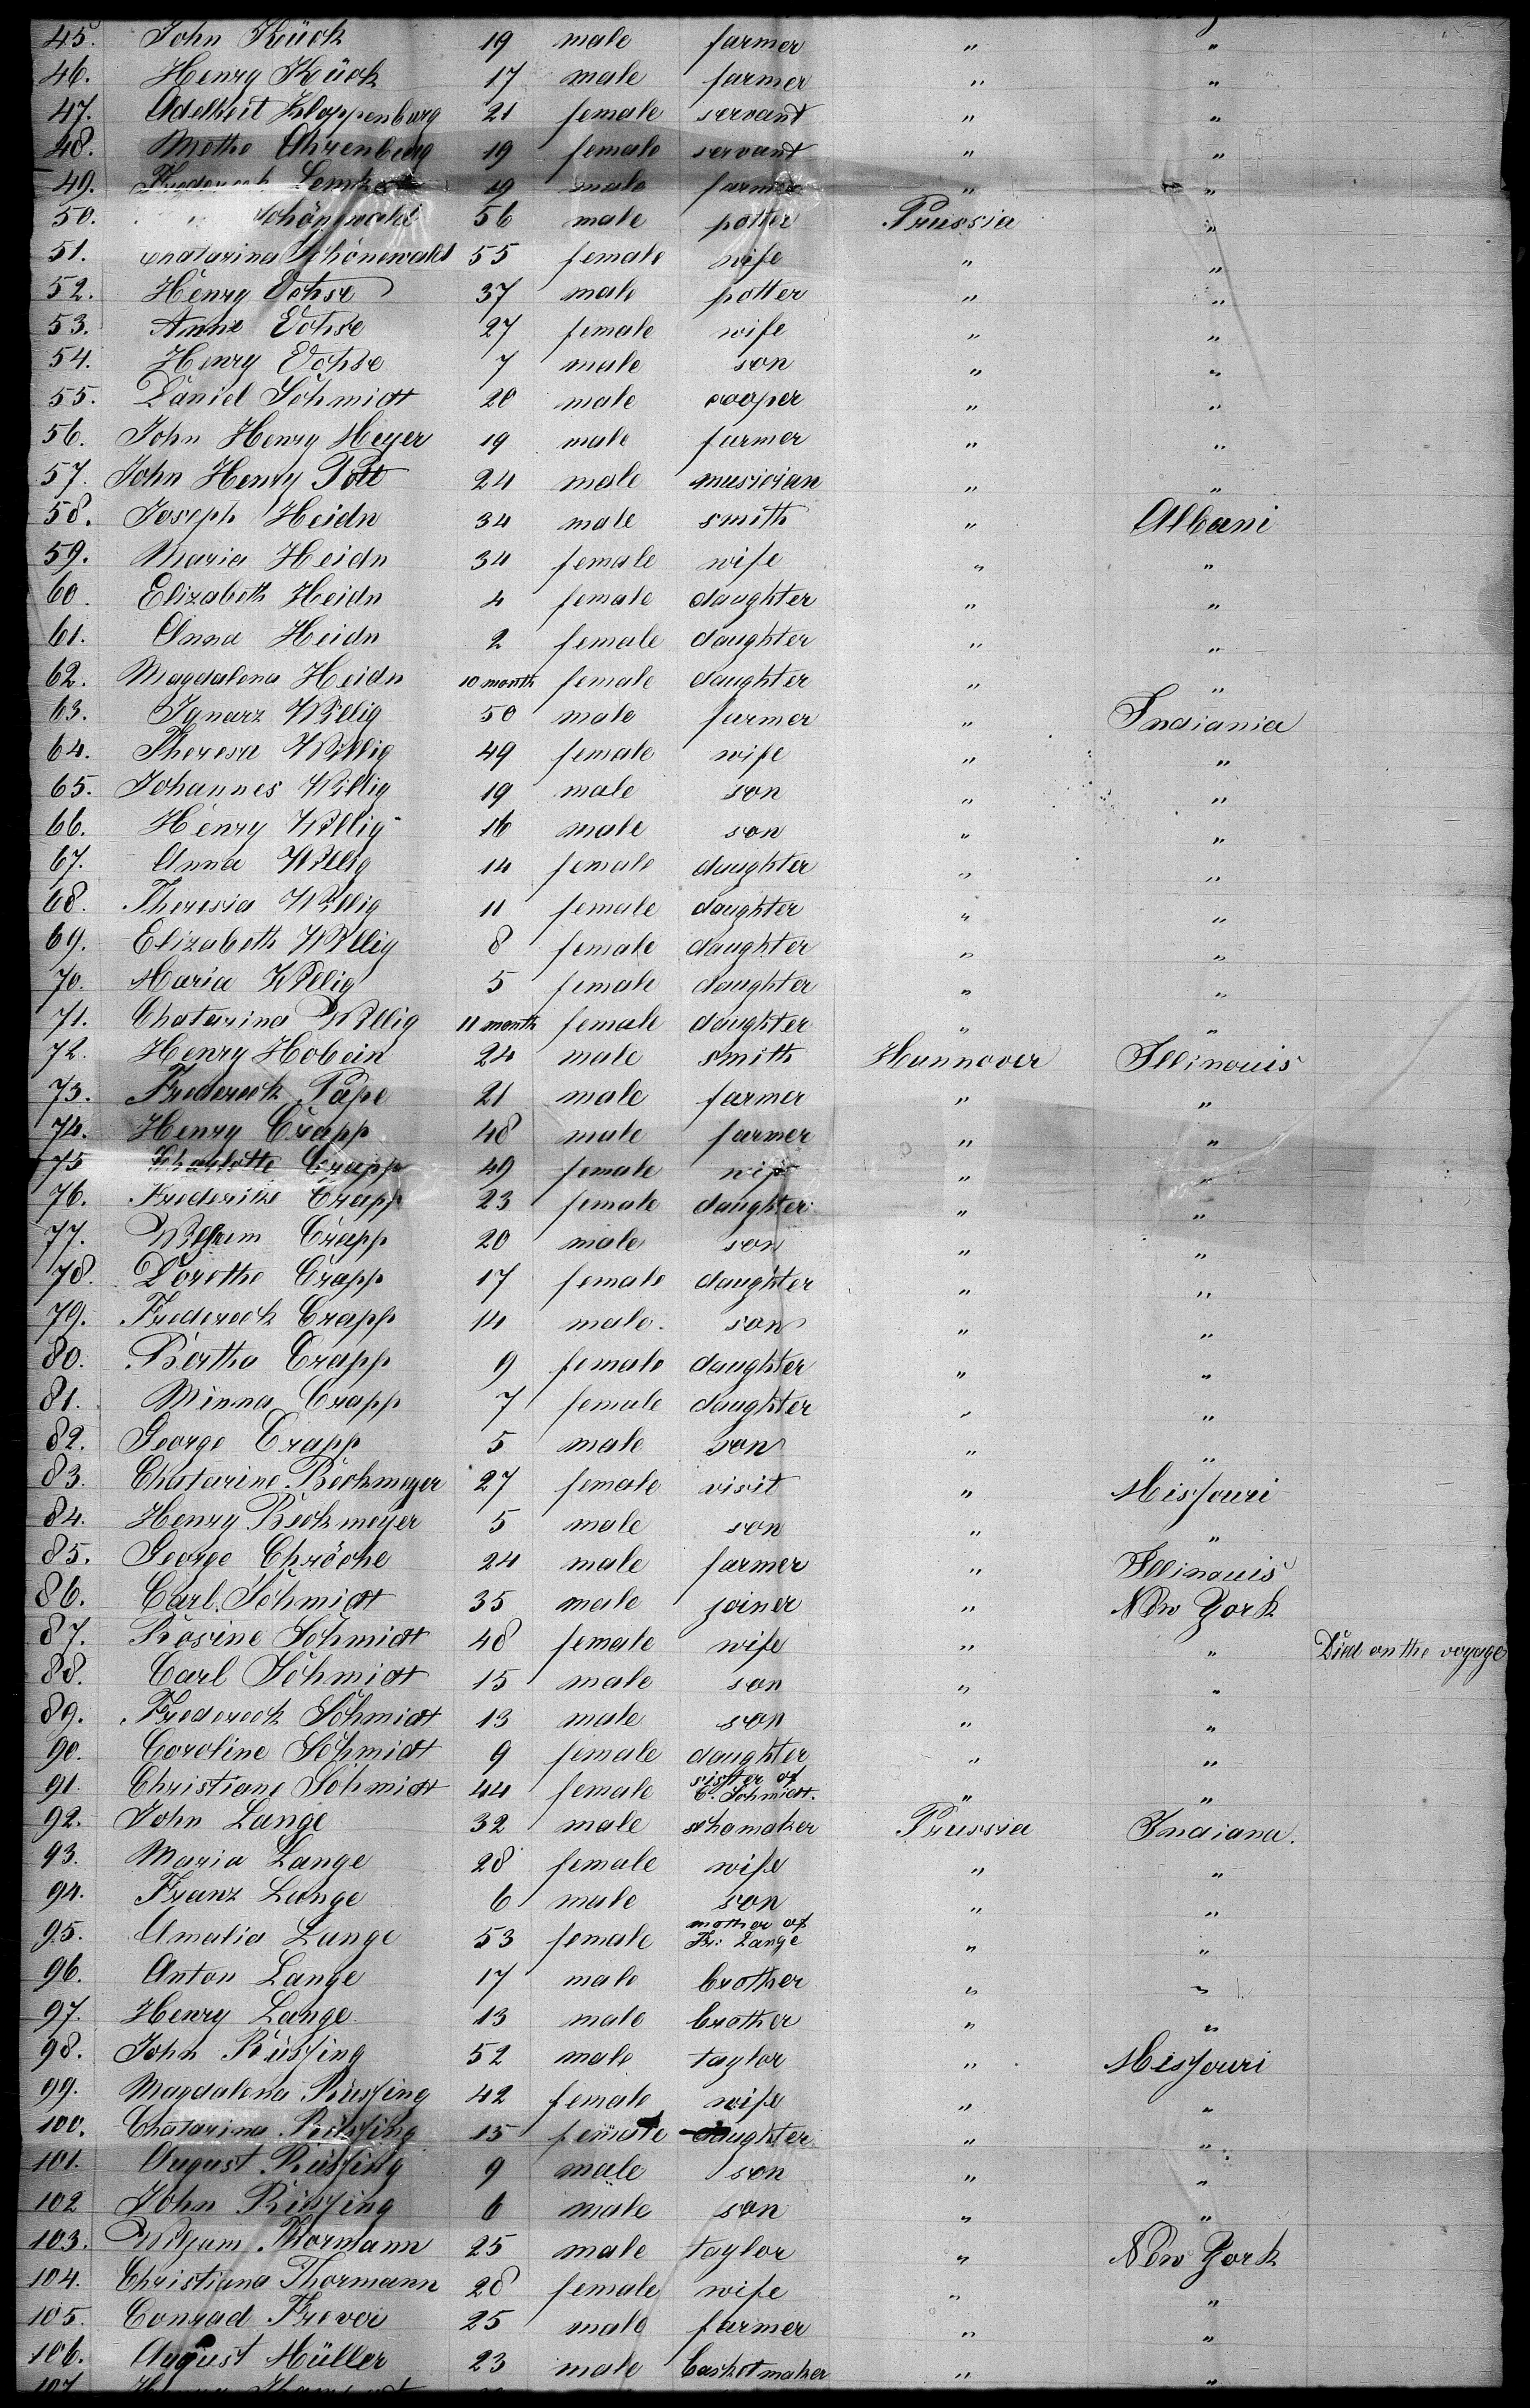 45. John Kück 19 male farmer " "
46. Henry Kück 17 male farmer " "
47. Adelheit Kloppenburg 21 female servant " "
48. Methe Ahrenberg 19 female servant " "
49. Frederech Lemke 19 male farmer " "
50. Schönewald 56 male potter Prussia "
51. Chatarina Schönewald 55 female wife " "
52. Henry Vohse 37 male potter " "
53. Anne Vohse 27 female wife " "
54. Henry Vohse 7 male son " "
55. Daniel Schmidt 20 male cooper " "
56. John Henry Meyer 19 male farmer " "
57. John Henry Pott 24 male musician " "
58. Joseph Heidn 34 male smith " Albani
59. Maria Heidn 34 female wife " "
60 Elizabeth Heidn 4 female daughter " "
61. Anna Heidn 2 female daughter " "
62. Magdalena Heidn 10 month female daughter " "
63. Ignarz Willig 50 male farmer " Indiania
64. Theresa Willig 49 female wife " "
65. Johannes Willig 19 male son " "
66. Henry Willig 16 male son " "
67. Anna Willig 14 female daughter " "
68. Theresia Willig 11 female daughter " "
69. Elizabeth Willig 8 female daughter " "
70. Maria Willig 5 female daughter " "
71. Chatarina Willig 11 month female daughter " "
72. Henry Hobein 24 male smith Hannover Illinouis
73. Fredereck Pape 21 male farmer " "
74. Henry Crapp 48 male farmer " "
75 Scharlotte Crapp 49 female wife " "
76. Frederike Crapp 23 female daughter " "
77. Wilhem Crapp 20 male son " "
78. Dorothe Crapp 17 female daughter " "
79. Fredereck Crapp 14 male. son " "
80. Bertha Crapp 9 female daughter " "
81. Minna Crapp 7 female daughter " "
82. George Crapp 5 male son " "
83. Chatarine Beckmeyer 27 female visit " Missouri
84. Henry Beckmeyer 5 male son " "
85. George Chröche 24 male farmer " Illinouis
86. Carl Schmidt 35 male joiner " New York
87. Rosine Schmidt 48 female wife " " Died on the voyage
88. Carl Schmidt 15 male son " "
89. Fredereck Schmidt 13 male son " "
90. Coroline Schmidt 9 female daughter " "
91. Christiane Schmidt 44 female sister of C. Schmidt. " "
92. John Lange 32 male schomaker Prussia Indiana.
93. Maria Lange 28 female wife " "
94. Franz Lange 6 male son " "
95. Amalia Lange 53 female mother of Fr: Lange " "
96. Anton Lange 17 male brother " "
97. Henry Lange 13 male brother " "
98. John Rüssing 52 male taylor " Missouri
99. Magdalena Rüssing 42 female wife " "
100. Chatarina Rüssing 15 female daughter " "
101. August Rüssing 9 male son " "
102 John Rüssing 6 male son " "
103. Wiljam Thormann 25 male taylor " New York
104. Christiana Thormann 28 female wife " "
105. Conrad Trevor 25 male farmer " "
106. August Müller 23 male basketmaker " "
107.